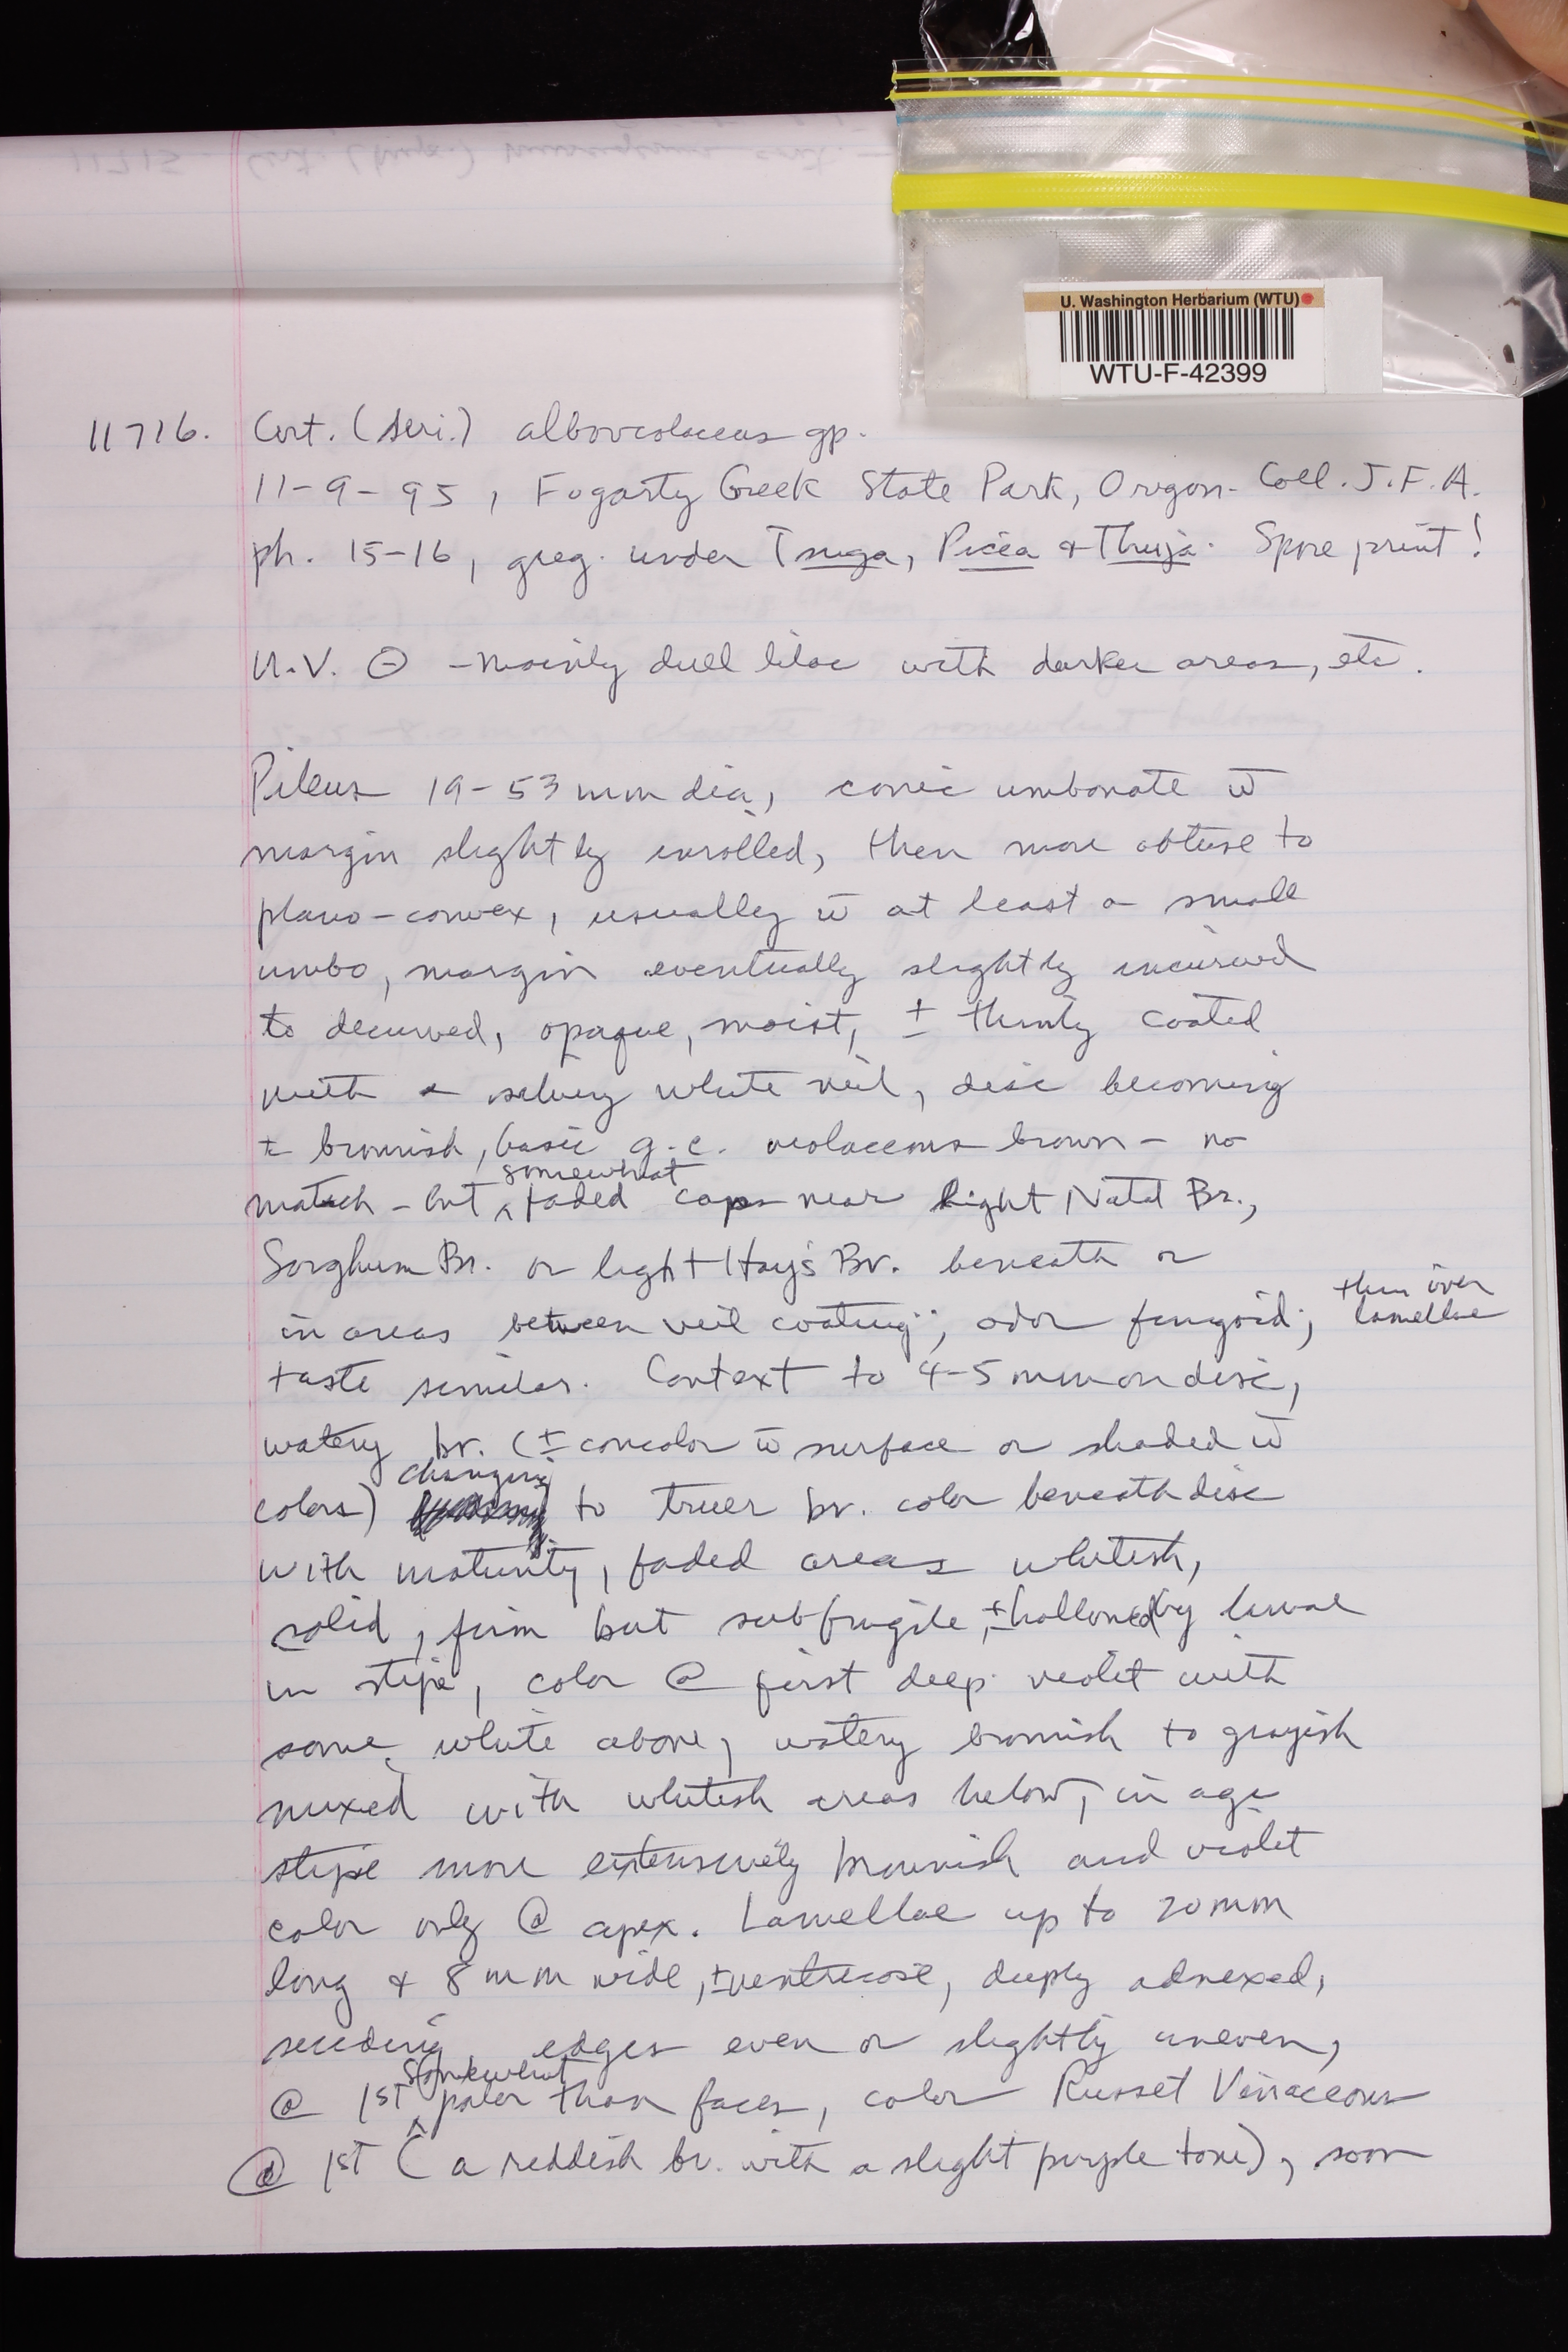 U. Washington Herbarium (WTU)
WTU-F-42399
11716. Cort. (Seri.) alboviolaceus gp.
11-9-95, Fogarty Creek State Park, Oregon. Coll. J.F.A.
ph. 15-16, greg. under Tsuga, Picea & Thuja. Spore print!
U.V. ⊖ - mainly dull lilac with darker areas, etc.
Pileus 19-53 mm dia, conic umbonate w̄
margin slightly inrolled, then more obtuse to
plano-convex, usually w̄ at least a small
umbo, margin eventually slightly incurved
to decurved, opaque, moist, ± thinly coated
with a silvery white veil, disc becoming
± brownish, basic g.c. violaceous brown - no
match - but somewhat faded caps near light Natal Br.,
Sorghum Br. or light Hay's Br. beneath or
in areas between veil coating; odor fungoid;
taste similar. Context to 4-5 mm on disc, thin over lamellae
watery br. (± concolor w̄ surface or shaded w̄
colors) changing to truer br. color beneath disc
with maturity, faded areas whitish,
solid, firm but subfragile, ± hollowed by larvae
in stipe, color @ first deep violet with
some white above, watery brownish to grayish
mixed with whitish areas below, in age
stipe more extensively brownish and violet
color only @ apex. Lamellae up to 20 mm
long & 8 mm wide, ± ventricose, deeply adnexed,
seceding, edges even or slightly uneven,
@ 1st somewhat paler than faces, color Russet Vinaceous
@ 1st (a reddish br. with a slight purple tone), soon